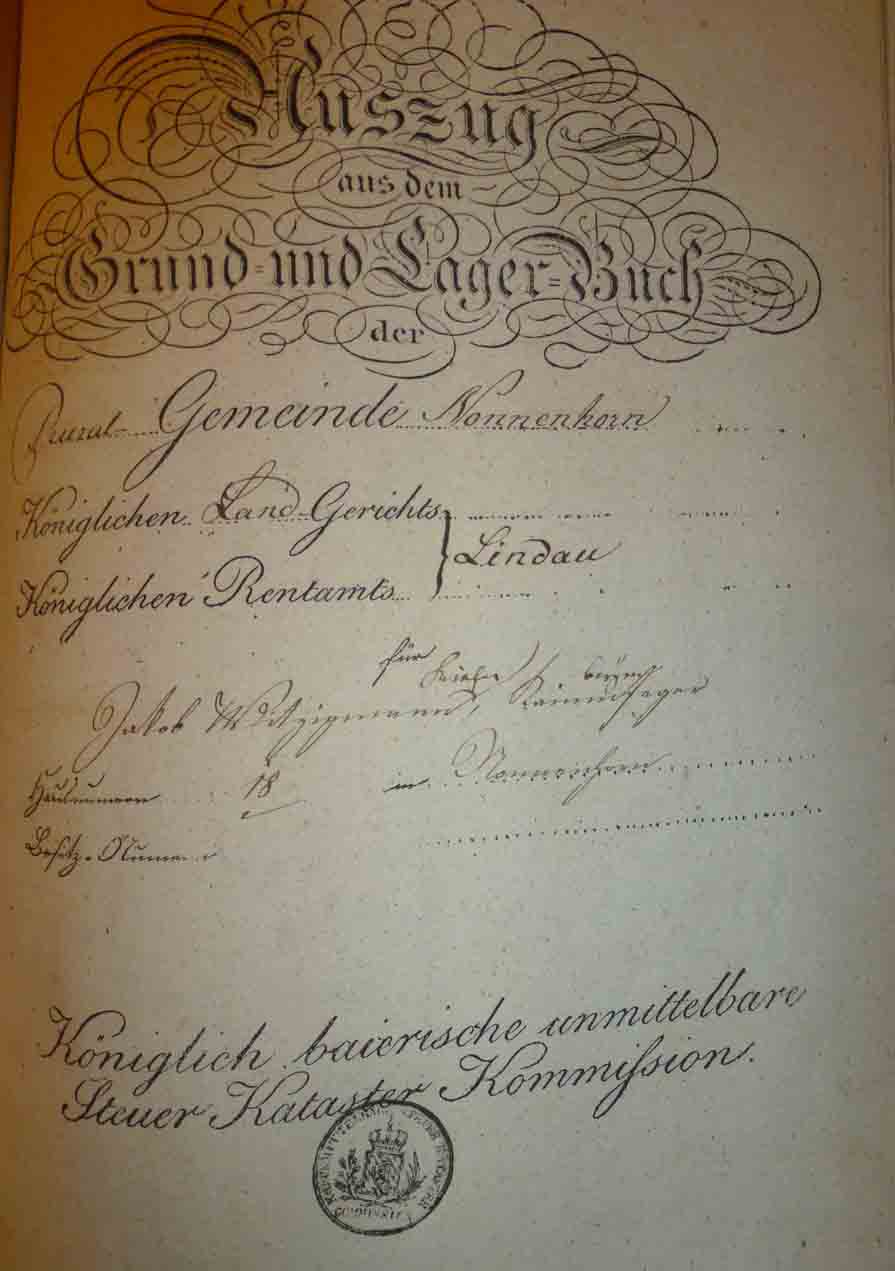 Auszug
aus dem
Grund- und Lager-Buch
der
Rural- Gemeinde Nonnenhorn
Königlichen Land-Gerichts
Lindau
Königlichen Rentamts
für
Jakob Witzigmann,
Hausnumero 18 in Nonnenhorn
Besitz-Numero
Königlich baierische unmittelbare
Steuer Kataster Kommission.